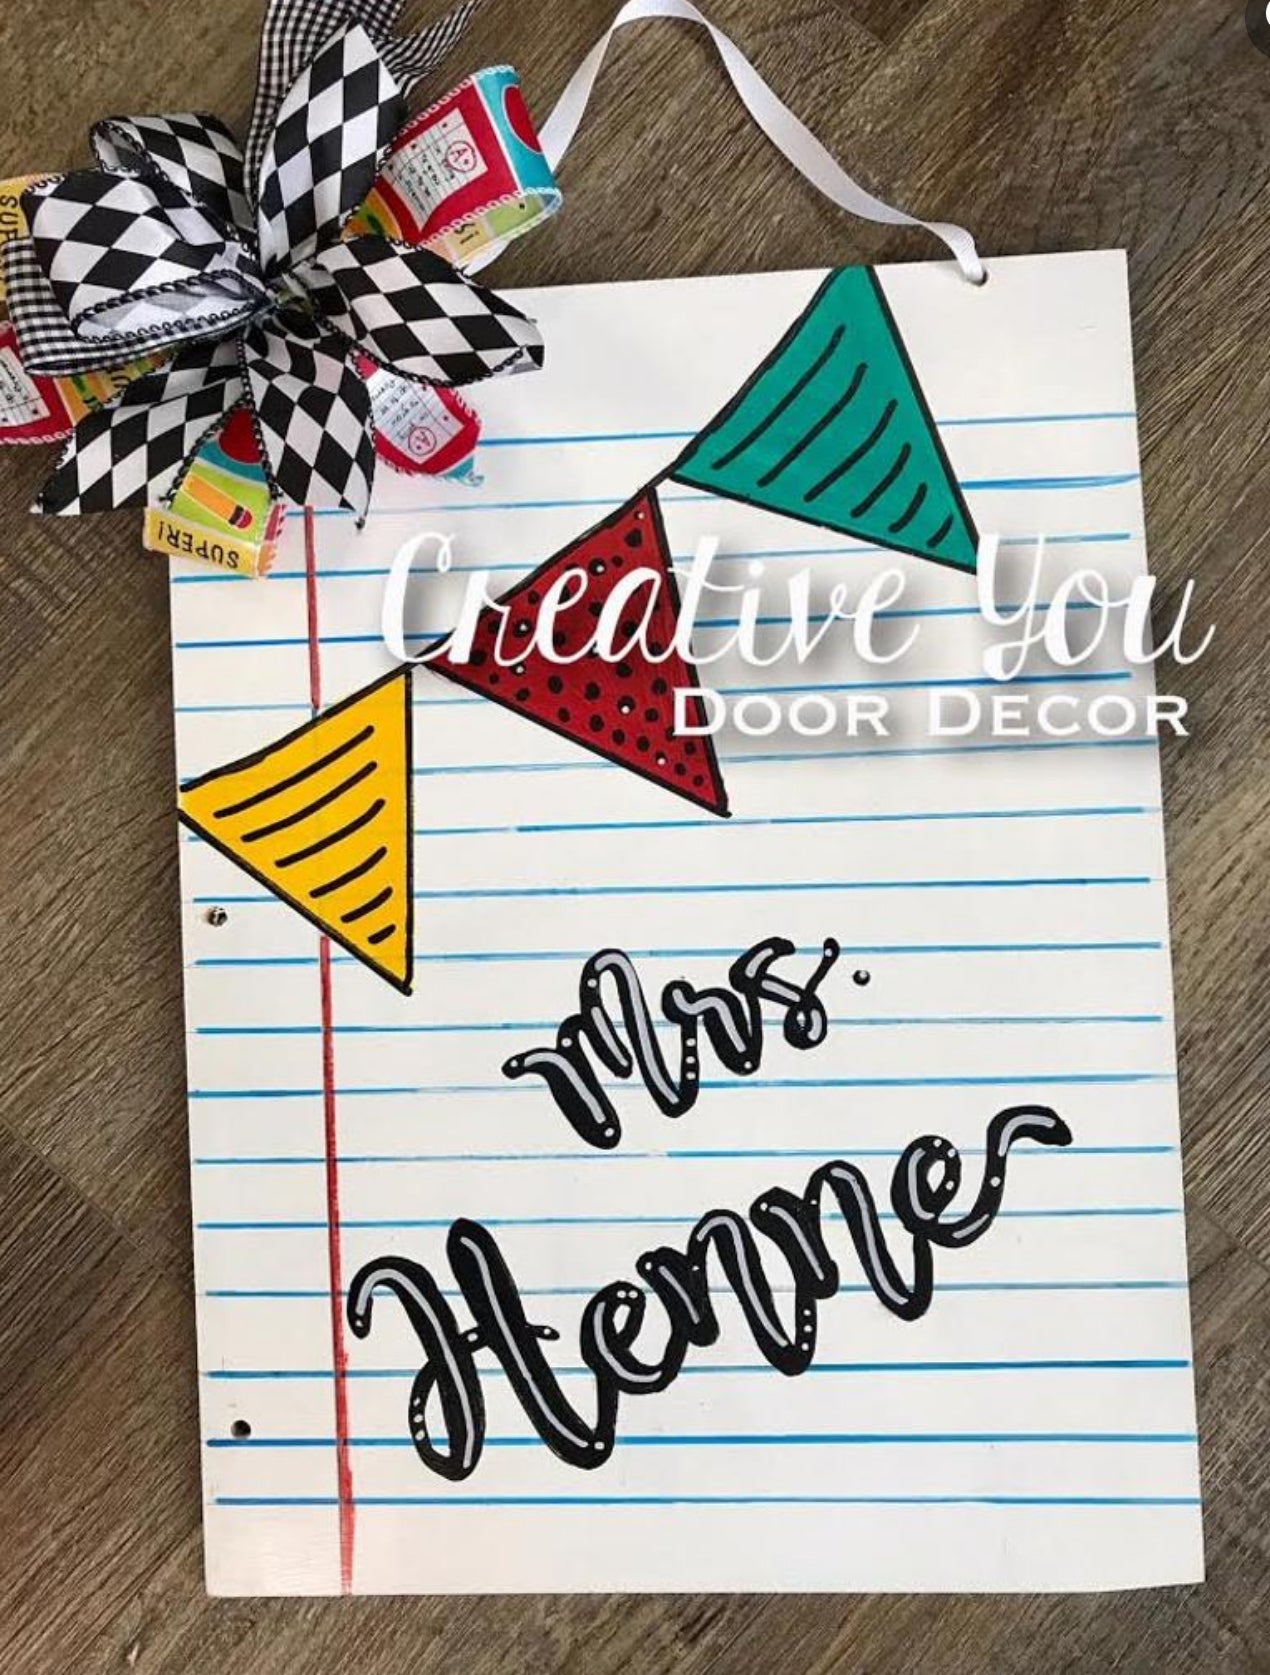 SUPER!
A+
A+
Creative You
DOOR DECOR
Mrs.
Henne